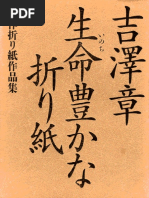 吉澤章
生命豊かな
いのち
折り紙
折り紙作品集